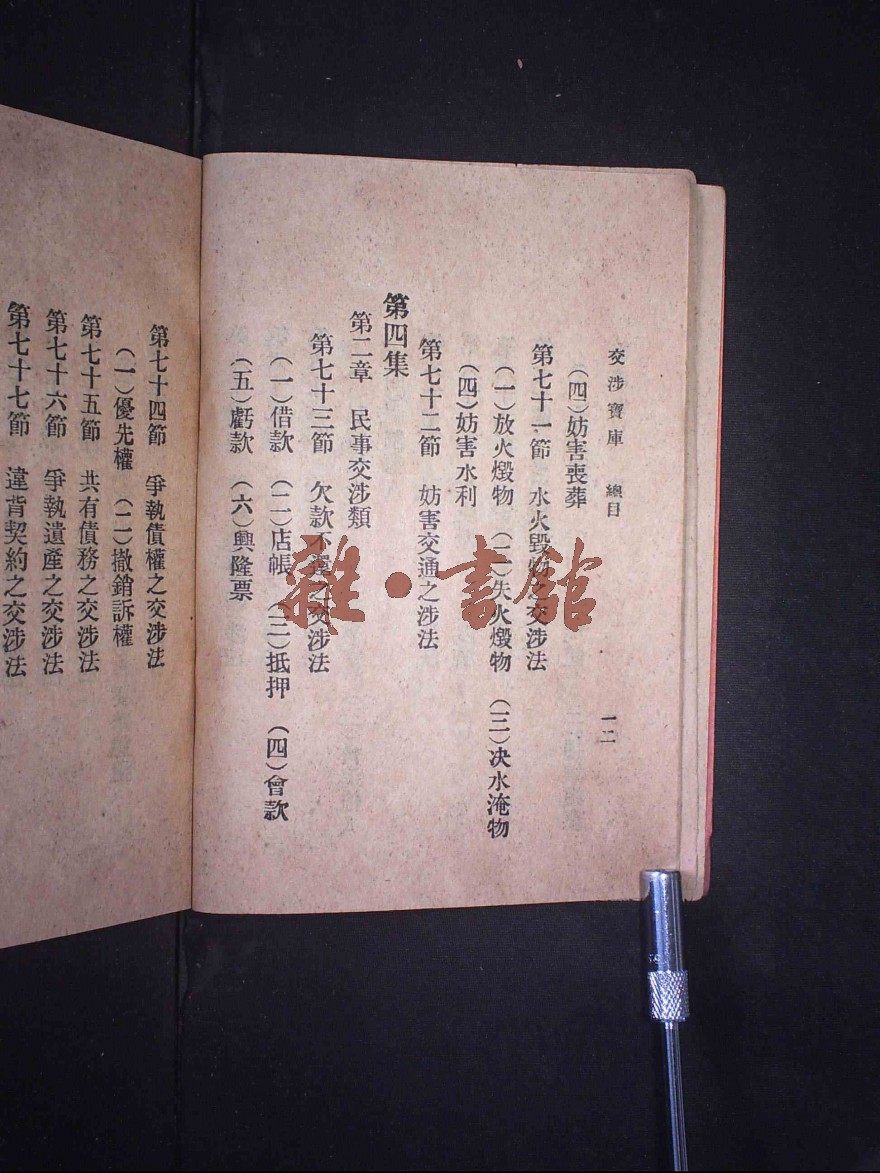 交涉寶庫　總目　一二
（四）妨害喪葬
第七十一節　水火毀物之交涉法
（一）放火燬物　（二）失火燬物　（三）決水淹物
（四）妨害水利
第七十二節　妨害交通之涉法
第四集
第二章　民事交涉類
第七十三節　欠款不還之交涉法
（一）借款　（二）店帳　（三）抵押　（四）會款
（五）虧款　（六）興隆票
第七十四節　爭執債權之交涉法
（一）優先權　（二）撤銷訴權
第七十五節　共有債務之交涉法
第七十六節　爭執遺產之交涉法
第七十七節　違背契約之交涉法
雜·書館